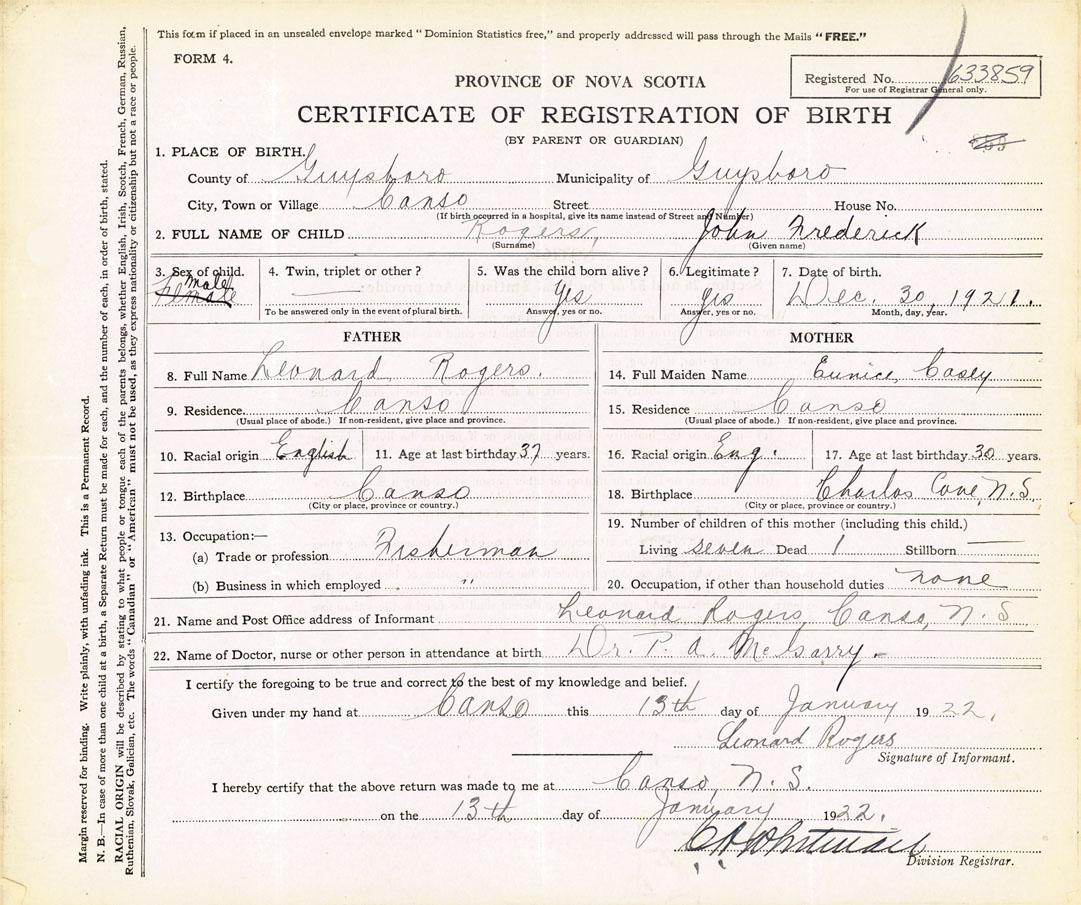 This form if placed in an unsealed envelope marked "Dominion Statistics free," and properly addressed will pass through the Mails "FREE."
FORM 4.
Registered No. 633859
For use of Registrar General only.
PROVINCE OF NOVA SCOTIA
CERTIFICATE OF REGISTRATION OF BIRTH
(BY PARENT OR GUARDIAN)
1. PLACE OF BIRTH.
County of Guysboro Municipality of Guysboro
City, Town or Village Canso Street House No.
(If birth occurred in a hospital, give its name instead of Street and Number)
2. FULL NAME OF CHILD Rogers, John Frederick
(Surname) (Given name)
3. Sex of child. 4. Twin, triplet or other? 5. Was the child born alive? 6. Legitimate? 7. Date of birth.
male
Female — Yes yes Dec. 30, 1921.
To be answered only in the event of plural birth. Answer, yes or no. Answer, yes or no. Month, day, year.
FATHER
8. Full Name Leonard Rogers.
9. Residence Canso
(Usual place of abode.) If non-resident, give place and province.
10. Racial origin English 11. Age at last birthday 37 years.
12. Birthplace Canso
(City or place, province or country.)
13. Occupation:—
(a) Trade or profession Fisherman
(b) Business in which employed "
MOTHER
14. Full Maiden Name Eunice Casey
15. Residence Canso
(Usual place of abode.) If non-resident, give place and province.
16. Racial origin Eng. 17. Age at last birthday 30 years.
18. Birthplace Charlos Cove, N.S.
(City or place, province or country.)
19. Number of children of this mother (including this child.)
Living seven Dead 1 Stillborn —
20. Occupation, if other than household duties none
21. Name and Post Office address of Informant Leonard Rogers, Canso, N.S
22. Name of Doctor, nurse or other person in attendance at birth Dr. P. A. McGarry.-
I certify the foregoing to be true and correct to the best of my knowledge and belief.
Given under my hand at Canso this 13th day of January 1922.
Leonard Rogers
Signature of Informant.
I hereby certify that the above return was made to me at Canso, N.S.
on the 13th day of January 1922.
Division Registrar.
Margin reserved for binding. Write plainly, with unfading ink. This is a Permanent Record.
N. B.—In case of more than one child at a birth, a Separate Return must be made for each, and the number of each, in order of birth, stated.
RACIAL ORIGIN will be described by stating to what people or tongue each of the parents belongs, whether English, Irish, Scotch, French, German, Russian,
Ruthenian, Slovak, Galician, etc. The words "Canadian" or "American" must not be used, as they express nationality or citizenship but not a race or people.